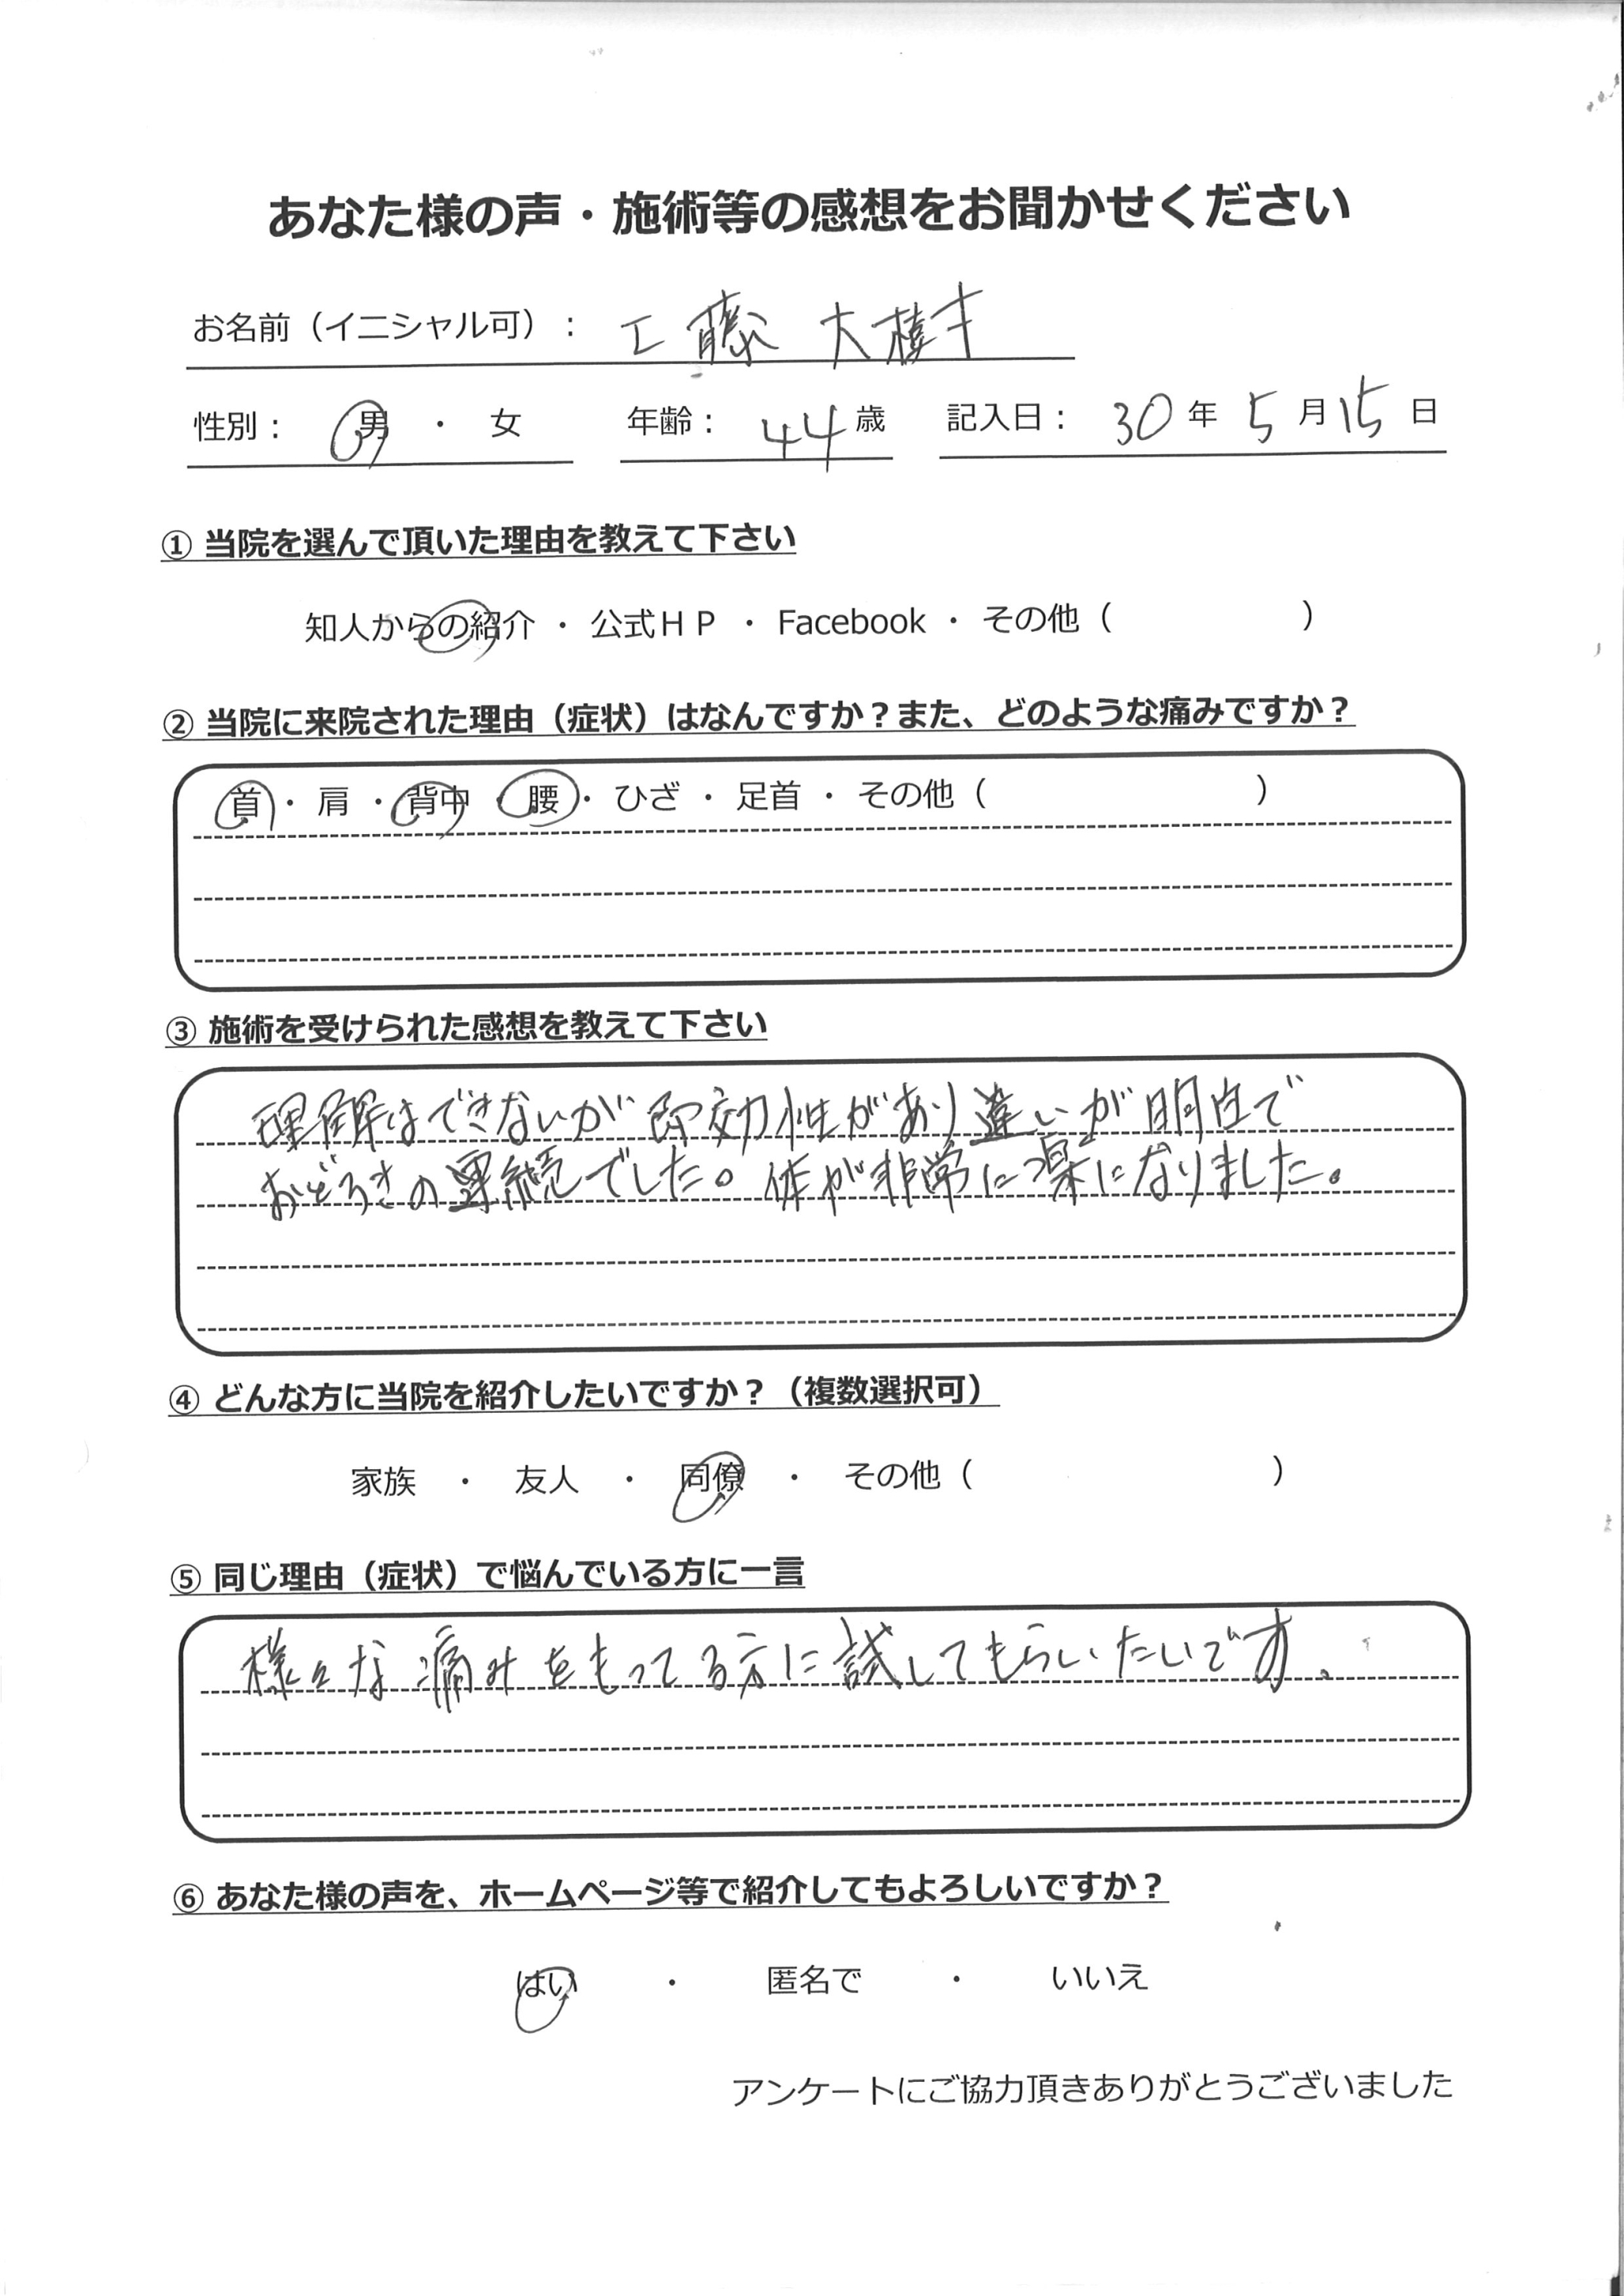 あなた様の声・施術等の感想をお聞かせください
お名前（イニシャル可）： 工藤 大樹
性別： 男 ・ 女 年齢： 44 歳 記入日： 30 年 5 月 15 日
① 当院を選んで頂いた理由を教えて下さい
知人からの紹介 ・ 公式ＨＰ ・ Facebook ・ その他（ ）
② 当院に来院された理由（症状）はなんですか？また、どのような痛みですか？
首 ・ 肩 ・ 背中 ・ 腰 ・ ひざ ・ 足首 ・ その他（ ）
③ 施術を受けられた感想を教えて下さい
理解はできないが即効性があり違いが明白で
おどろきの連続でした。体が非常に楽になりました。
④ どんな方に当院を紹介したいですか？（複数選択可）
家族 ・ 友人 ・ 同僚 ・ その他（ ）
⑤ 同じ理由（症状）で悩んでいる方に一言
様々な痛みをもってる方に試してもらいたいです。
⑥ あなた様の声を、ホームページ等で紹介してもよろしいですか？
はい ・ 匿名で ・ いいえ
アンケートにご協力頂きありがとうございました